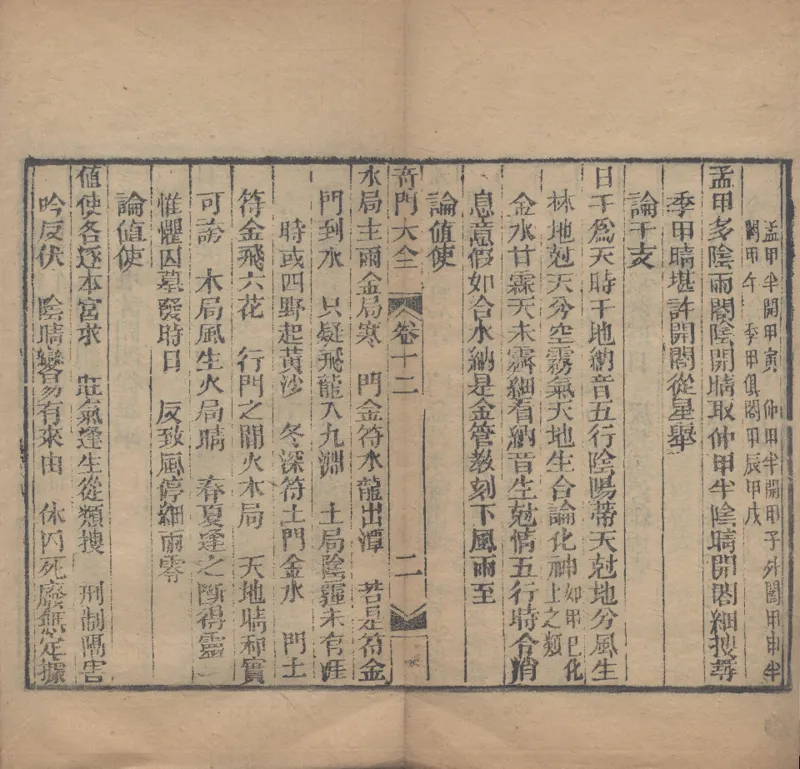 孟甲半開甲寅　仲甲半開甲子外闔甲申半
闔甲午　季甲俱闔甲辰甲戌
孟甲多陰雨闔陰開晴取仲甲半陰晴開闔細搜尋
季甲晴堪許開闔從星舉
論干支
日干爲天時干地納音五行陰陽蒂天尅地分風生
林地尅天兮空霧氣天地生合論化神如甲己化土之類
金水甘霖天未霽細看納音生尅情五行時令消
息意假如合水納是金管敎刻下風雨至
論值使
奇門大全　卷十二　二
水局主雨金局寒　門金符水龍出潭　若是符金
門到水　只疑飛龍入九淵　土局陰霾未有涯
時或四野起黃沙　冬深符土門金水　門土
符金飛六花　行門之開火木局　天地晴和實
可誇　木局風生火局晴　春夏逢之斷得靈
惟懼囚墓發時日　反致風停細雨零
論值使
值使各逐本宮求　旺氣逢生從類搜　刑制隔害
吟反伏　陰晴變易有來由　休囚死廢無定據